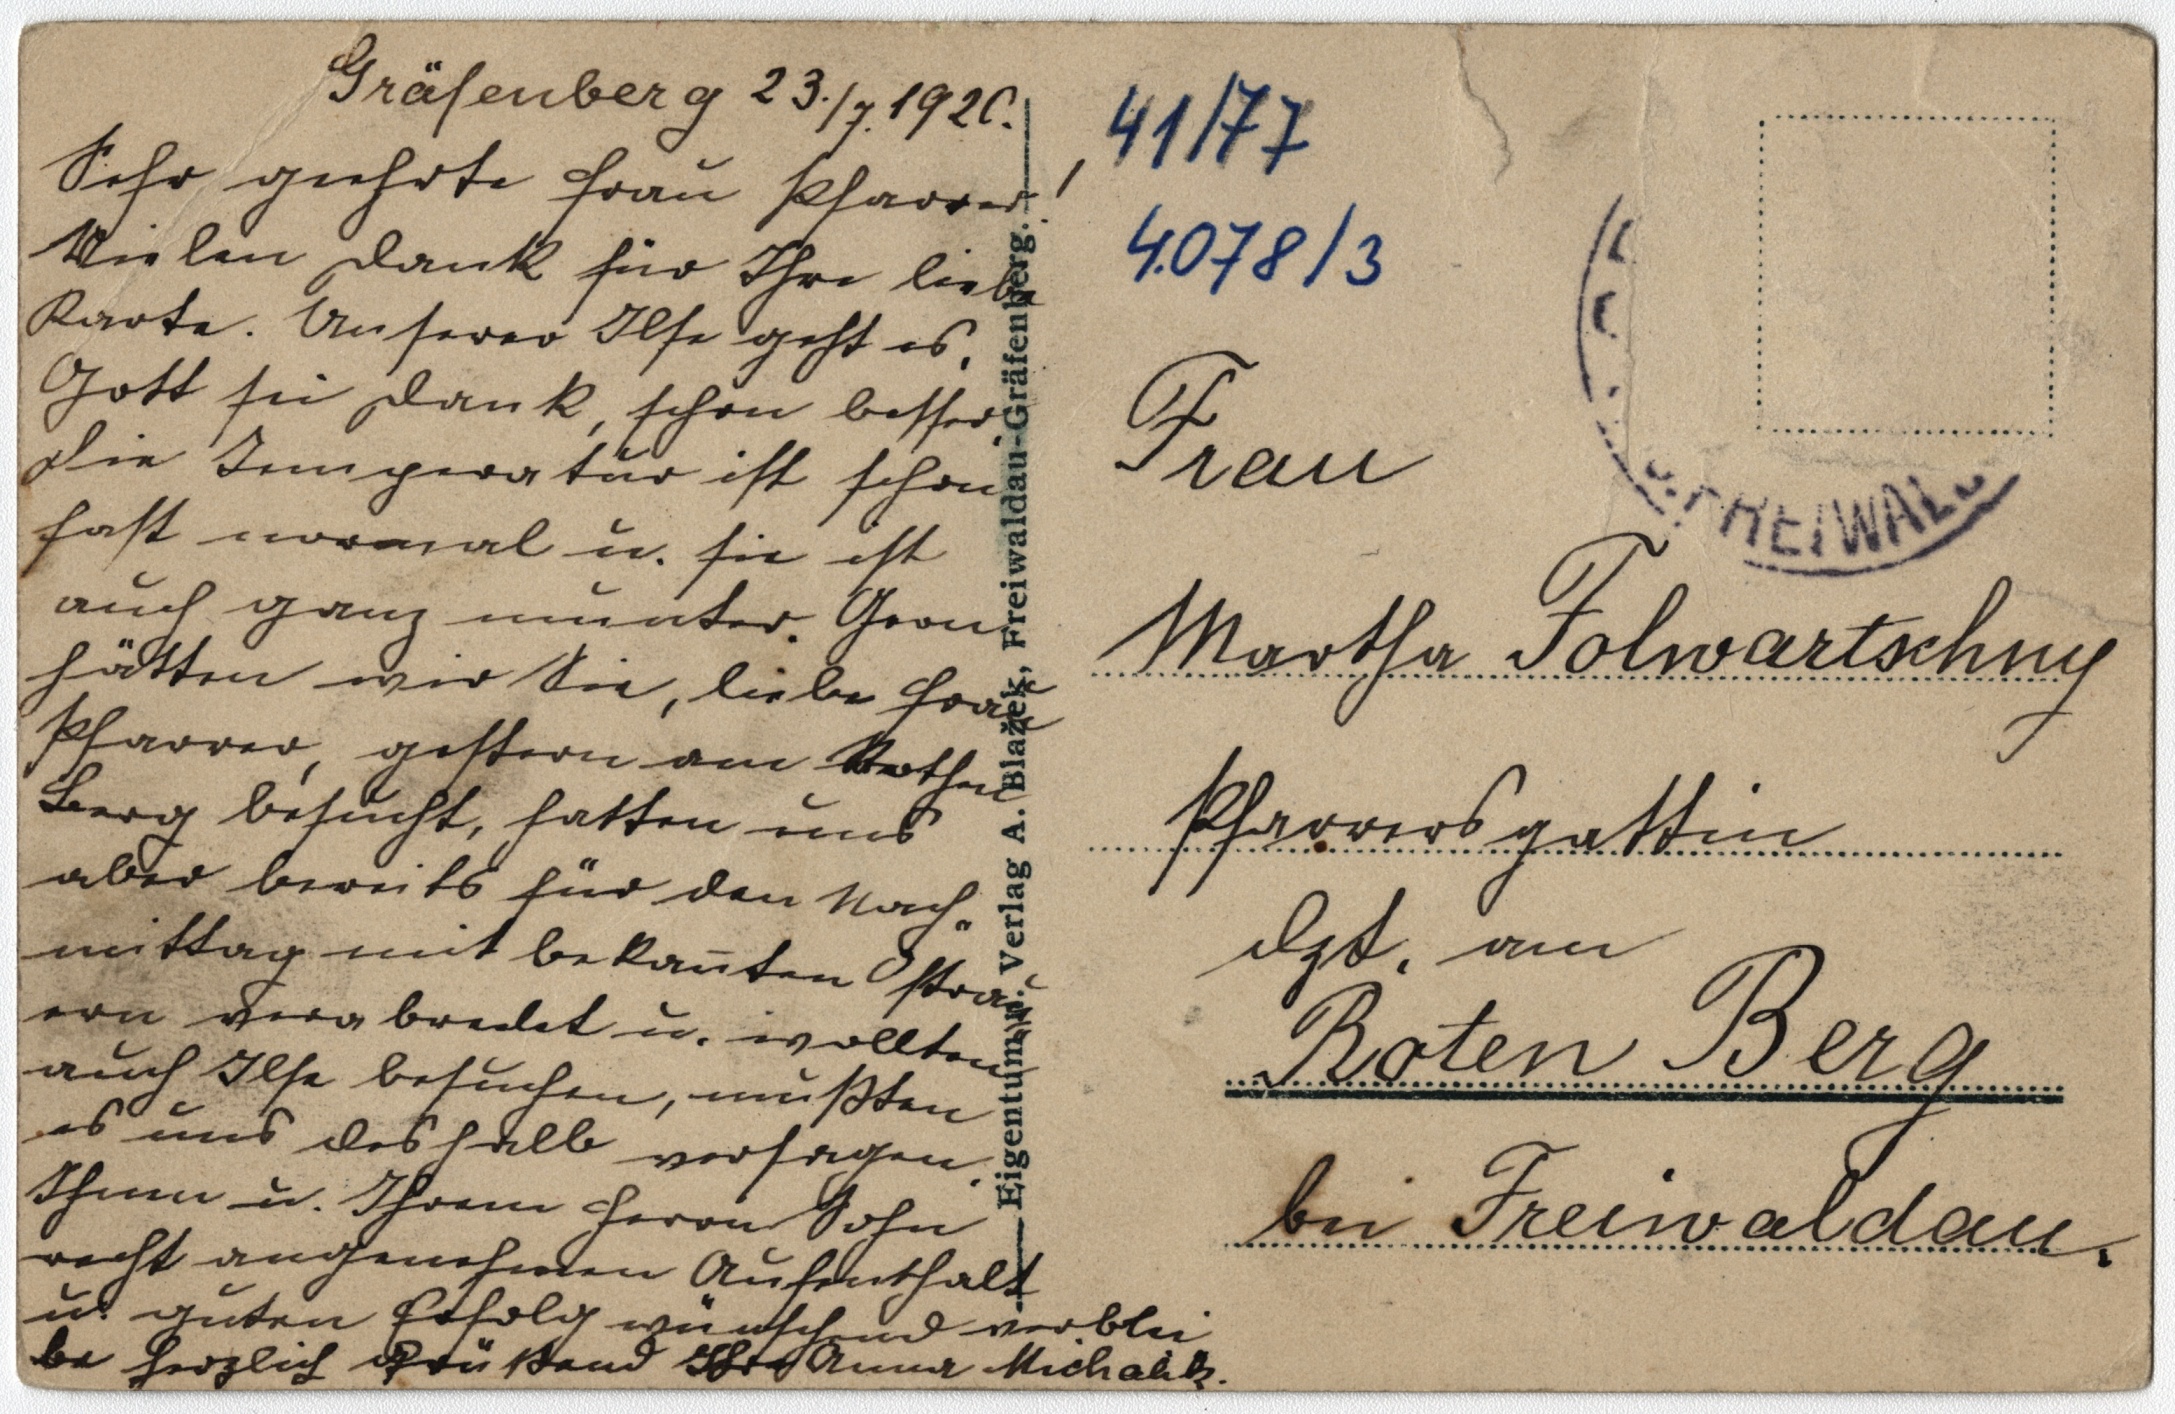 Gräfenberg 23./7. 1926.
Sehr geehrte Frau Pfarrer!
Vielen Dank für Ihre liebe
Karte. Unserer Ilse geht es,
Gott sei Dank, schon besser,
die Temperatur ist schon
fast normal u. sie ist
auch ganz munter. Gern
hätten wir Sie, liebe Frau
Pfarrer, gestern am Rothen
Berg besucht, hatten uns
aber bereits für den Nach-
mittag mit bekan̄ten
ern verabredet u. wollten
auch Ilse besuchen, mußten
es uns deshalb versagen.
Ihnen u. Ihrem Herrn Sohn
recht angenehmen Aufenthalt
u. guten Erfolg wünschend verblei
be herzlich grüßend Ihre Anna Michalik.
Eigentum u. Verlag A. Blažek, Freiwaldau-Gräfenberg.
41/77
4.078/3
FREIWAL
Frau
Martha Folwartschny
Pfarrersgattin
dzt. am
Roten Berg
bei Freiwaldau.